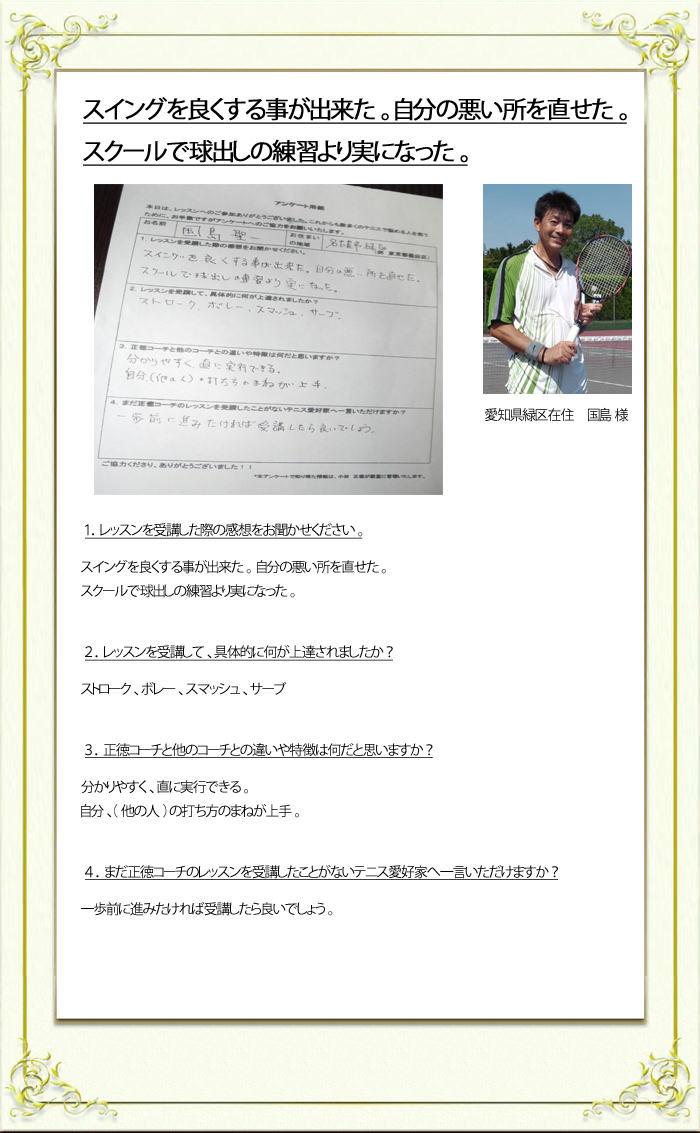 スイングを良くする事が出来た。自分の悪い所を直せた。
スクールで球出しの練習より実になった。
アンケート用紙
本日は、レッスンへのご参加ありがとうございました。これからも数多くのテニスで悩める人を救う
ために、お手数ですがアンケートへのご協力をお願いいたします。
お名前 国島 聖一 お住まいの地域 名古屋市緑区
1. レッスンを受講した際の感想をお聞かせください。
スイングを良くする事が出来た。自分の悪い所を直せた。
スクールで球出しの練習より実になった。
2. レッスンを受講して、具体的に何が上達されましたか?
ストローク、ボレー、スマッシュ、サーブ
3. 正徳コーチと他のコーチとの違いや特徴は何だと思いますか?
分かりやすく、直に実行できる。
自分、(他の人)の打ち方のまねが上手。
4. まだ正徳コーチのレッスンを受講したことがないテニス愛好家へ一言いただけますか?
一歩前に進みたければ受講したら良いでしょう。
ご協力くださり、ありがとうございました!!
愛知県緑区在住 国島 様
1. レッスンを受講した際の感想をお聞かせください。
スイングを良くする事が出来た。自分の悪い所を直せた。
スクールで球出しの練習より実になった。
2. レッスンを受講して、具体的に何が上達されましたか?
ストローク、ボレー、スマッシュ、サーブ
3. 正徳コーチと他のコーチとの違いや特徴は何だと思いますか?
分かりやすく、直に実行できる。
自分、(他の人)の打ち方のまねが上手。
4. まだ正徳コーチのレッスンを受講したことがないテニス愛好家へ一言いただけますか?
一歩前に進みたければ受講したら良いでしょう。